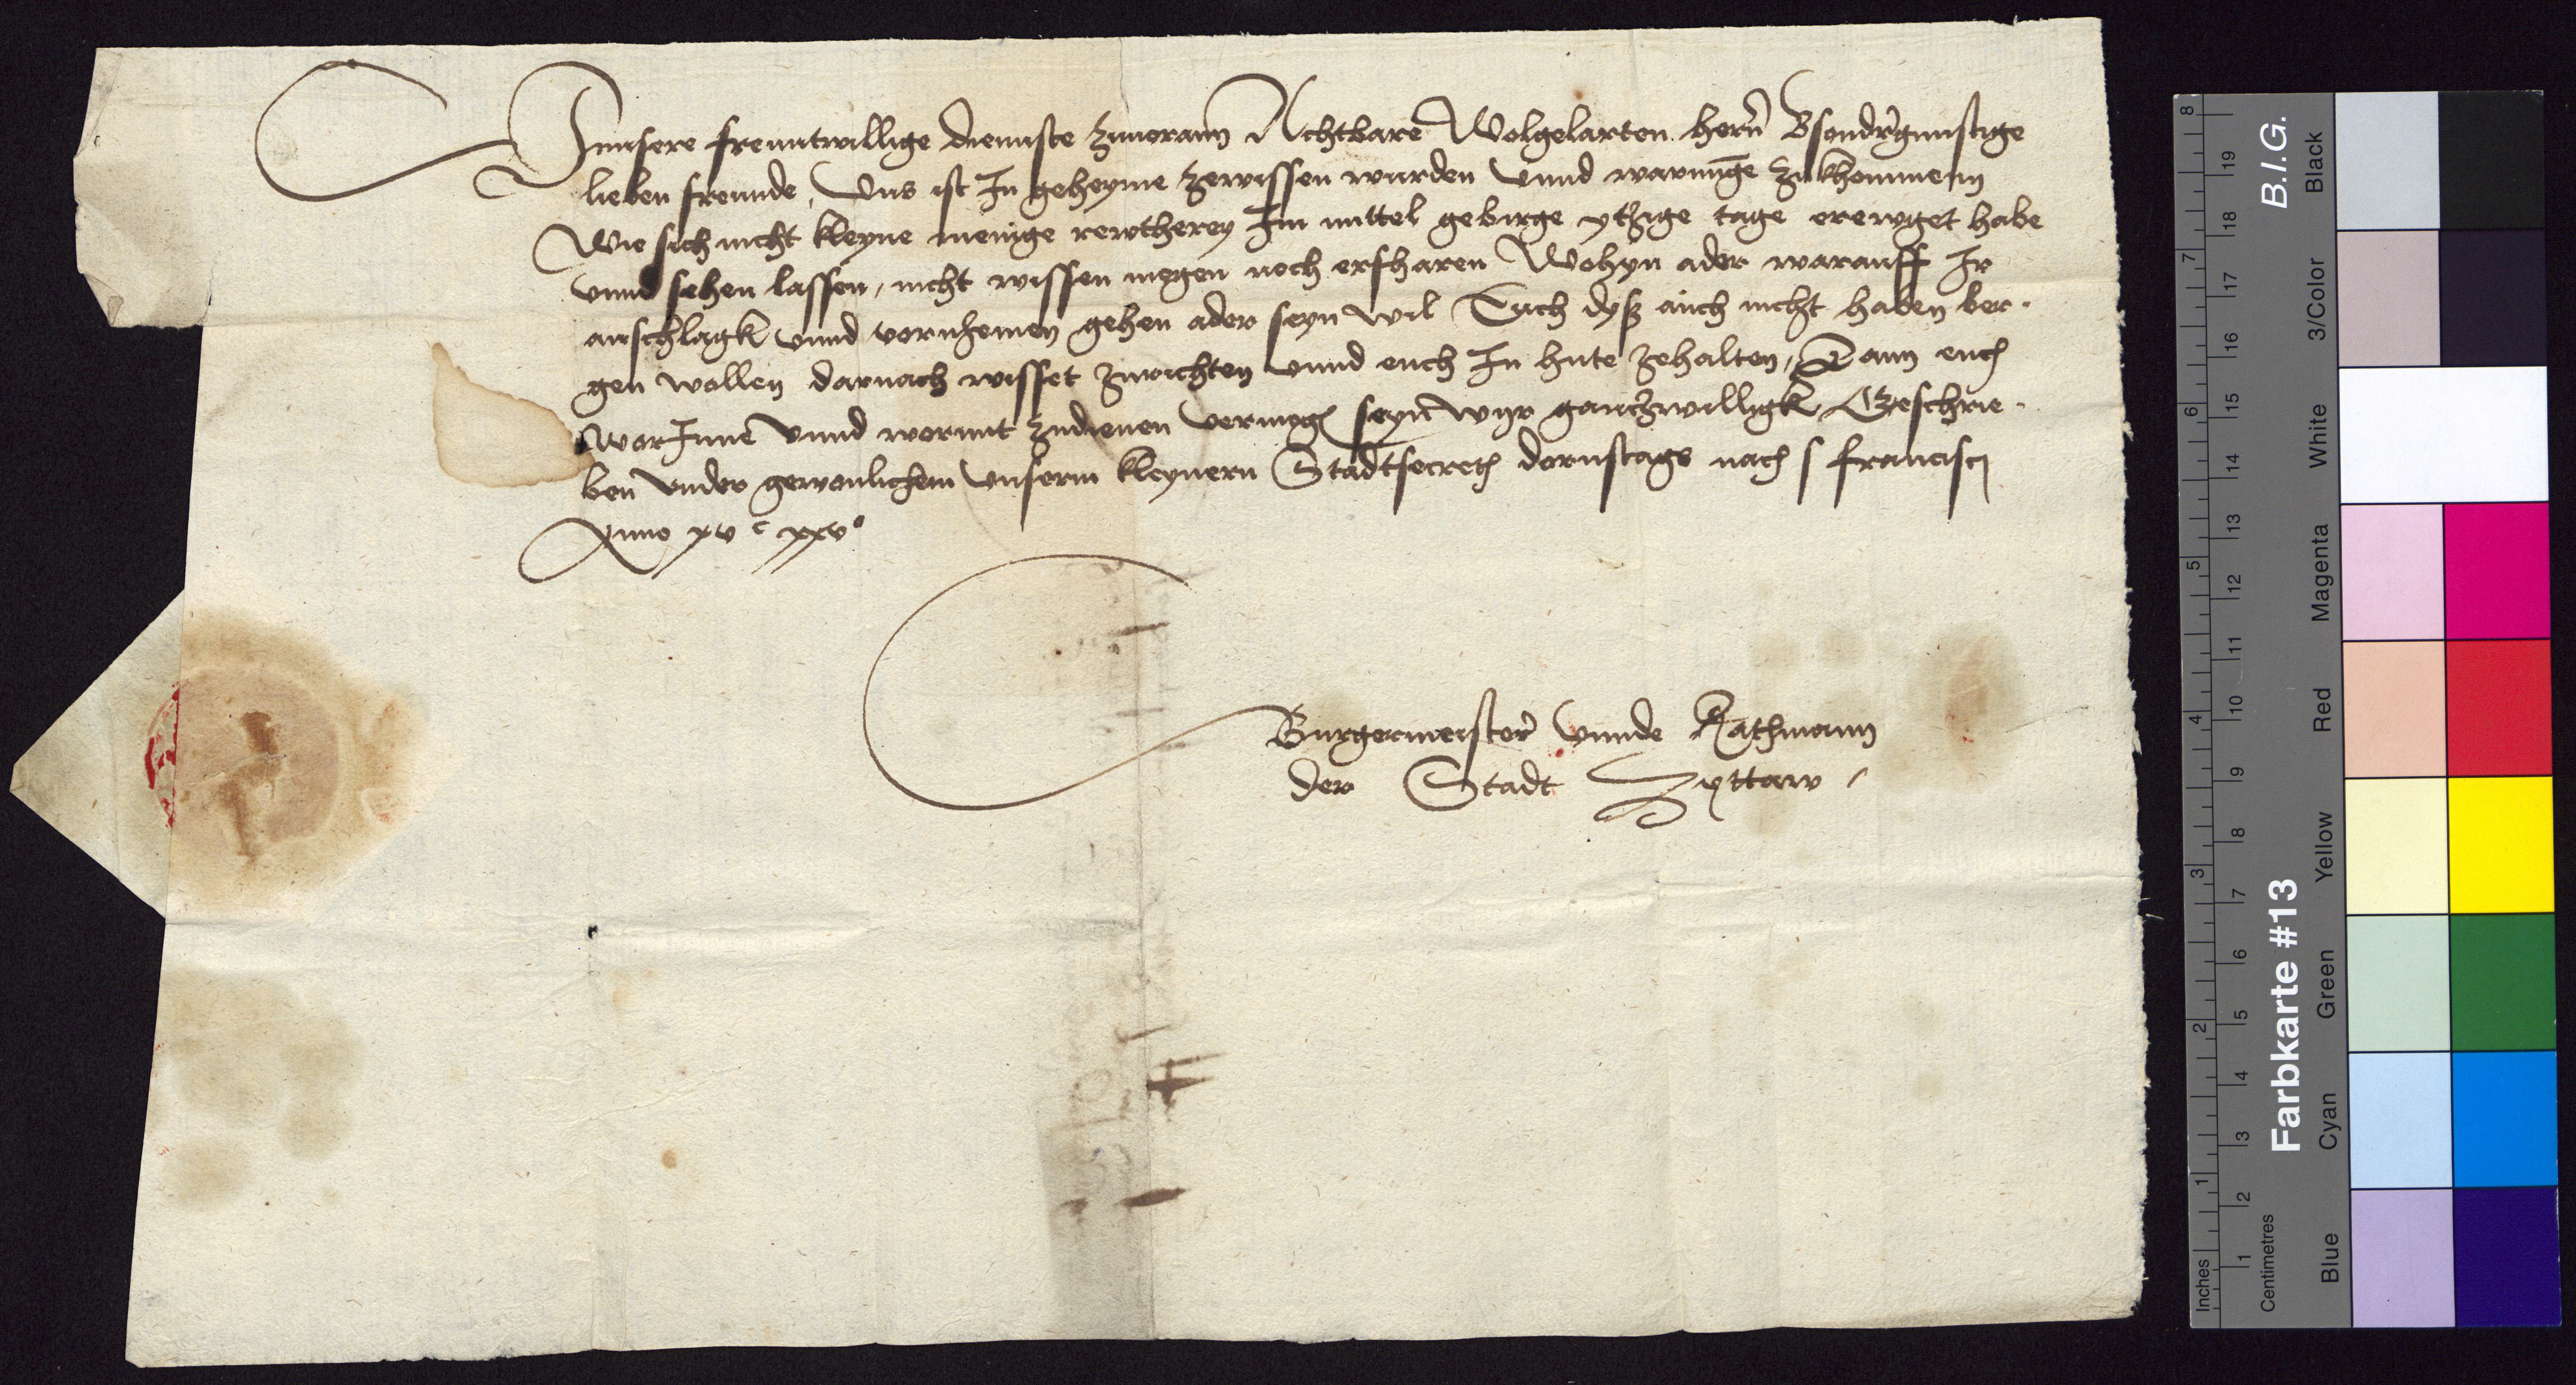 Vnnsere freuntwillige diennste zuuorann Achtbare Wolgelarten hern Bsondrgunstige
lieben freunde, Vns ist In geheyme zewissen wurden vnnd warnunge zukhommenn
Wie sich nicht kleyne menige rewtherey Im mittel gebirge ytzige tage ereuget habe
vnnd sehen lassen, nicht wissen mogen noch erfharen Wohyn ader warauff Ir
anschlagk vnnd vornhemen gehen ader seyn wil Euch dyß auch nicht haben ber-
gen wollen darnach wisset zurichten vnnd euch In hute zehalten, Dann euch
WorInne vnnd wormit zudienen vermogen seyn wyr gantzwilligk Geschrie-
ben vnder gewonlichem vnserm kleynern Stadtsecreth dornstags nach s francisci
Anno xv c xxv°
Burgermeister vnnde Rathmann
der Stadt Zyttaw
8 7 6 5 4 3 2 1 Inches
19 18 17 16 15 14 13 12 11 10 9 8 7 6 5 4 3 2 1 Centimetres
Farbkarte #13
B.I.G.
Blue Cyan Green Yellow Red Magenta White 3/Color Black